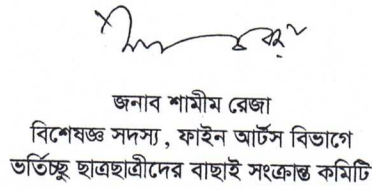 জনাব শামীম রেজা
বিশেষজ্ঞ সদস্য, ফাইন আর্টস বিভাগে
ভর্তিচ্ছু ছাত্রছাত্রীদের বাছাই সংক্রান্ত কমিটি